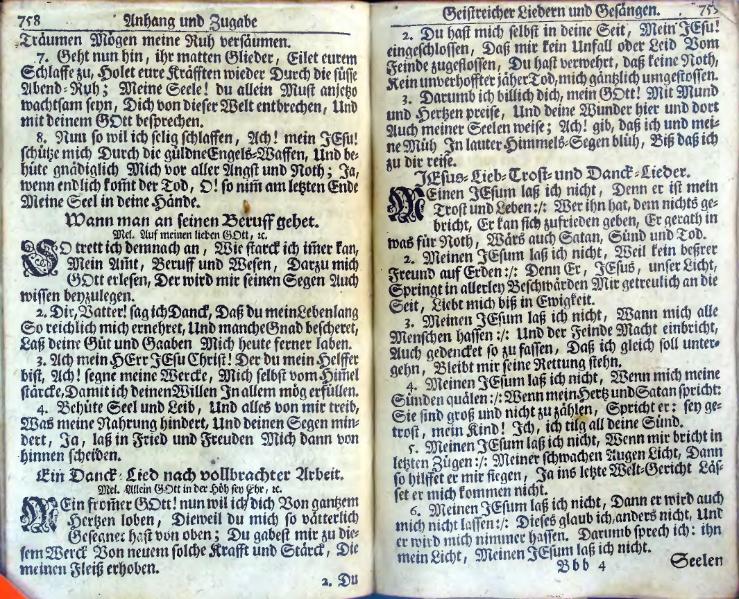 758 Anhang und Zugabe
Träumen Mögen meine Ruh versäumen.
7. Geht nun hin, ihr matten Glieder, Eilet eurem
Schlaffe zu, Holet eure Kräfften wieder Durch die süsse
Abend-Ruh; Meine Seele! du allein Must anjetzo
wachtsam seyn, Dich von dieser Welt entbrechen, Und
mit deinem GOtt besprechen.
8. Nun so wil ich selig schlaffen, Ach! mein JEsu!
schütze mich Durch die güldne Engels-Waffen, Und be-
hüte gnädiglich Mich vor aller Angst und Noth; Ja,
wenn endlich kom̃t der Tod, O! so nim̃ am letzten Ende
Meine Seel in deine Hände.
Wann man an seinen Beruff gehet.
Mel. Auf meinen lieben GOtt, ꝛc.
SO trett ich demnach an, Wie starck ich im̃er kan,
Mein Amt, Beruff und Wesen, Darzu mich
GOtt erlesen, Der wird mir seinen Segen Auch
wissen beyzulegen.
2. Dir, Vatter! sag ich Danck, Daß du mein Lebenlang
So reichlich mich ernehret, Und manche Gnad bescheret,
Laß deine Güt und Gaaben Mich heute ferner laben.
3. Ach mein HErr JEsu Christ! Der du mein Helffer
bist, Ach! segne meine Wercke, Mich selbst vom Him̃el
stärcke, Damit ich deinen Willen In allem mög erfüllen.
4. Behüte Seel und Leib, Und alles von mir treib,
Was meine Nahrung hindert, Und deinen Segen min-
dert, Ja, laß in Fried und Freuden Mich dann von
hinnen scheiden.
Ein Danck-Lied nach vollbrachter Arbeit.
Mel. Allein GOtt in der Höh sey Ehr, ꝛc.
MEin from̃er GOtt! nun wil ich dich Von gantzem
Hertzen loben, Dieweil du mich so vätterlich
Gesegnet hast von oben; Du gabest mir zu die-
sem Werck Von neuem solche Krafft und Stärck, Die
meinen Fleiß erhoben.
2. Du
Geistreicher Liedern und Gesängen. 759
2. Du hast mich selbst in deine Seit, Mein JEsu!
eingeschlossen, Daß mir kein Unfall oder Leid Vom
Feinde zugestossen, Du hast verwehrt, daß keine Noth,
Kein unverhoffter jäher Tod, mich gäntzlich umgestossen.
3. Darum ich billich dich, mein GOtt! Mit Mund
und Hertzen preise, Und deine Wunder hier und dort
Auch meiner Seelen weise; Ach! gib, daß ich und mei-
ne Müh In lauter Himmels-Segen blüh, Biß daß ich
zu dir reise.
JEsus-Lieb-Trost- und Danck-Lieder.
MEinen JEsum laß ich nicht, Denn er ist mein
Trost und Leben:/: Wer ihn hat, dem nichts ge-
bricht, Er kan sich zufrieden geben, Er gerath in
was für Noth, Wärs auch Satan, Sünd und Tod.
2. Meinen JEsum laß ich nicht, Weil kein beßrer
Freund auf Erden:/: Denn Er, JEsus, unser Licht,
Springt in allerley Beschwärden Mir getreulich an die
Seit, Liebt mich biß in Ewigkeit.
3. Meinen JEsum laß ich nicht, Wann mich alle
Menschen hassen:/: Und der Feinde Macht einbricht,
Auch gedencket so zu fassen, Daß ich gleich soll unter-
gehn, Bleibt mir seine Rettung stehn.
4. Meinen JEsum laß ich nicht, Wenn mich meine
Sünden quälen:/: Wenn mein Hertz und Satan spricht:
Sie sind groß und nicht zu zählen, Spricht er: sey ge-
trost, mein Kind! Ich, ich tilg all deine Sünd.
5. Meinen JEsum laß ich nicht, Wenn mir bricht in
letzten Zügen:/: Meiner schwachen Augen Licht, Dann
so hilffet er mir siegen, Ja ins letzte Welt-Gericht Läs-
set er mich kommen nicht.
6. Meinen JEsum laß ich nicht, Dann er wird auch
mich nicht lassen:/: Dieses glaub ich, anders nicht, Und
er wird mich nimmer hassen. Darumb sprech ich: ihn
mein Licht, Meinen JEsum laß ich nicht.
Bbb 4 Seelen